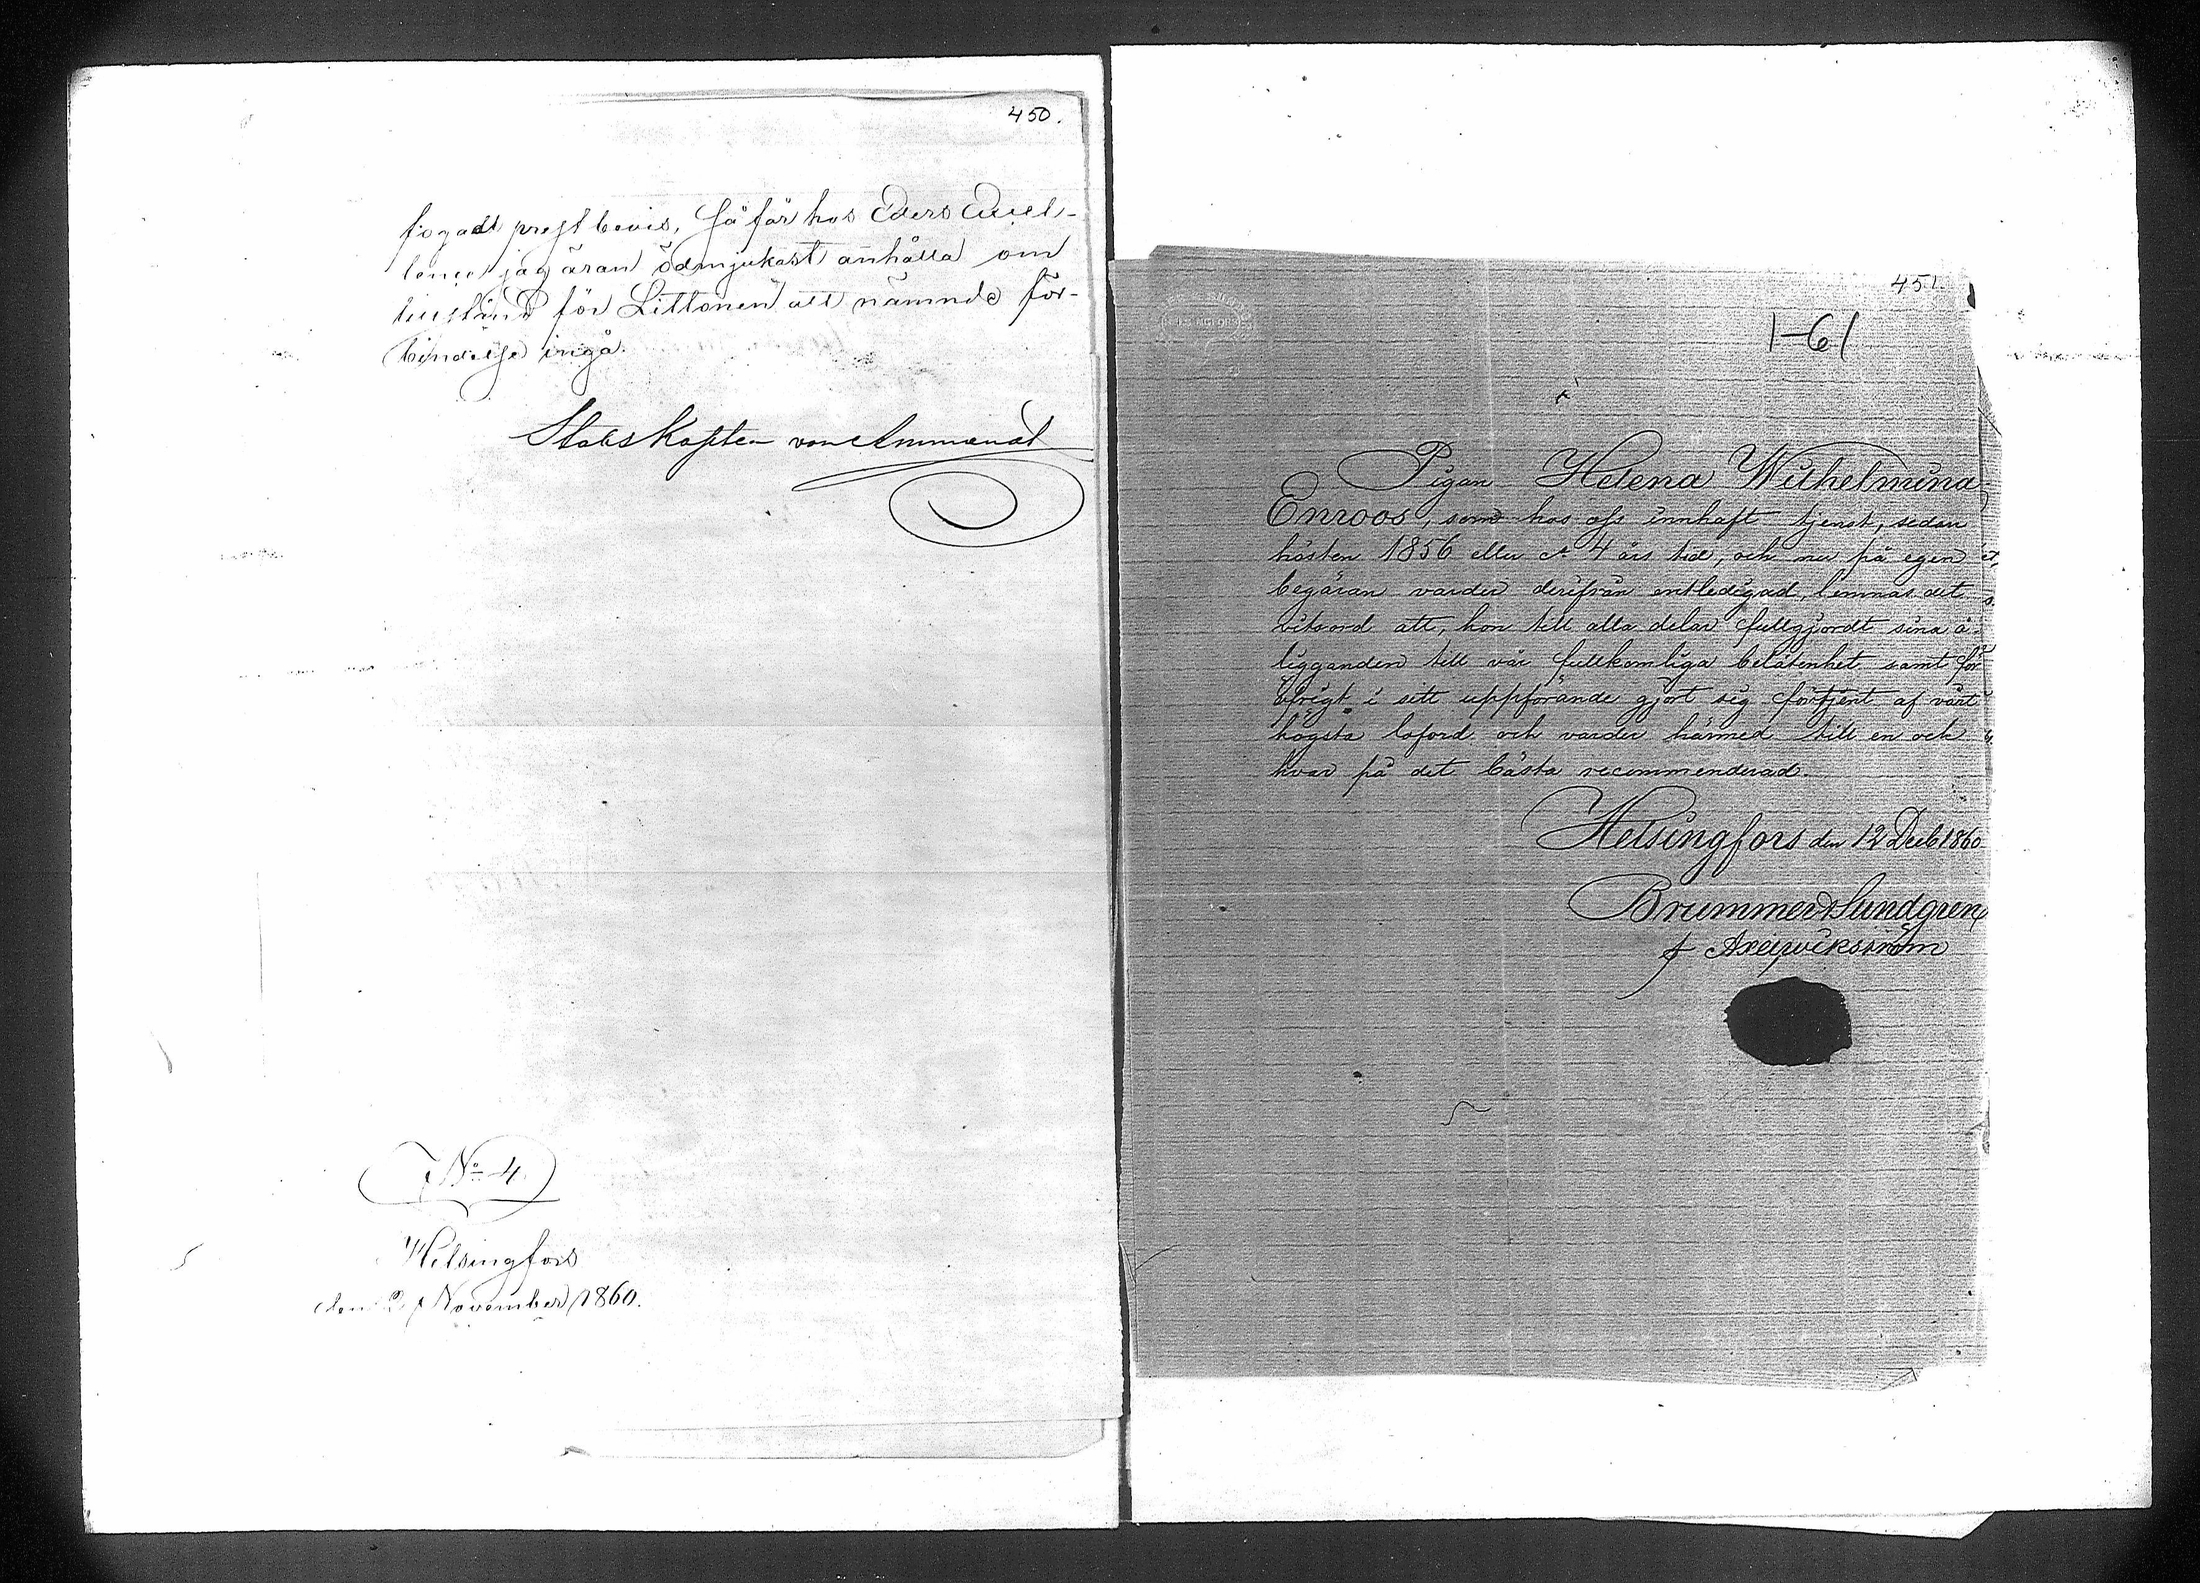 450.
fogadt prestbevis, så får hos Eders Excel-
lence jag äran ödmjukast anhålla om
tillstånd för Littonen att nämnde för-
bindelse ingå.
Stabskapten von Ammondt
No 4
Helsingfors
den 2 November 1860.
451.
1-61
Pigan Helena Wilhelmina
Enroos, som hos oss innhaft tjenst, sedan
hösten 1856 eller ca 4 års tid, och nu på egen
begäran varder derifrån entledigad, lemnas det
vitsord att, hon till alla delar fullgjordt sina å-
ligganden till vår fullkomliga belåtenhet samt för
öfrigt i sitt uppförande gjort sig förtjent af vårt
högsta loford och varder härmed till en och
hvar på det bästa recommenderad.
Helsingfors den 12 Decb 1860
Brummer & Sundgren
Axel Wickström